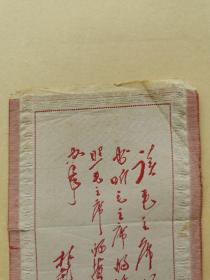 读毛主席
书听毛主席的
照毛主席的指
办事
林彪